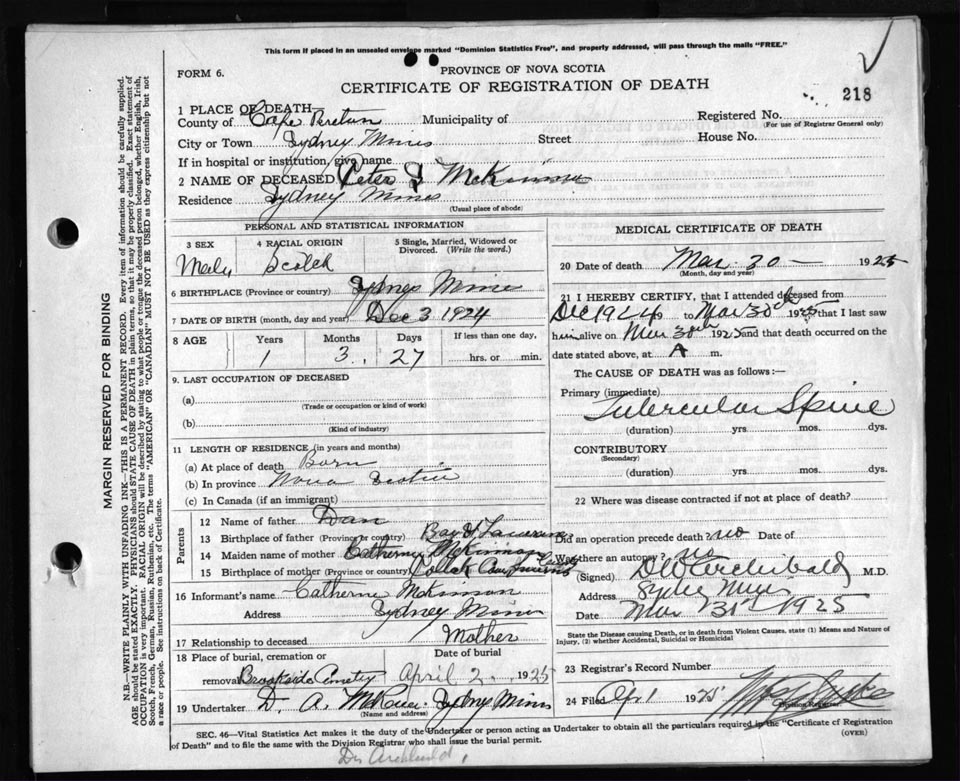 This form if placed in an unsealed envelope marked "Dominion Statistics Free", and properly addressed, will pass through the mails "FREE."
FORM 6.
PROVINCE OF NOVA SCOTIA
CERTIFICATE OF REGISTRATION OF DEATH
218
1 PLACE OF DEATH
County of Cape Breton Municipality of Registered No.
(For use of Registrar General only)
City or Town Sydney Mines Street House No.
If in hospital or institution, give name
2 NAME OF DECEASED Peter J McKinnon
Residence Sydney Mines
(Usual place of abode)
PERSONAL AND STATISTICAL INFORMATION
3 SEX 4 RACIAL ORIGIN 5 Single, Married, Widowed or Divorced. (Write the word.)
Male Scotch
6 BIRTHPLACE (Province or country) Sydney Mines
7 DATE OF BIRTH (month, day and year) Dec 3 1924
8 AGE Years Months Days If less than one day,
1 3 27 hrs. or min.
9. LAST OCCUPATION OF DECEASED
(a)
(Trade or occupation or kind of work)
(b)
(Kind of industry)
11 LENGTH OF RESIDENCE (in years and months)
(a) At place of death Born
(b) In province Nova Scotia
(c) In Canada (if an immigrant)
Parents
12 Name of father Dan
13 Birthplace of father (Province or country) Bay St Lawrence
14 Maiden name of mother Catherine McKinnon
15 Birthplace of mother (Province or country)
16 Informant's name Catherine McKinnon
Address Sydney Mines
17 Relationship to deceased Mother
18 Place of burial, cremation or removal Date of burial
Brookside Cemetry April 2 1925
19 Undertaker D. A. Sydney Mines
(Name and address)
MEDICAL CERTIFICATE OF DEATH
20 Date of death Mar 30 1925
(Month, day and year)
21 I HEREBY CERTIFY, that I attended deceased from
Dec 1924 to Mar 30th 1925 that I last saw
him alive on Mar 30th 1925 and that death occurred on
date stated above, at A m.
The CAUSE OF DEATH was as follows:—
Primary (immediate)
Tubercular Spine
(duration) yrs. mos. dys.
CONTRIBUTORY
(Secondary)
(duration) yrs. mos. dys.
22 Where was disease contracted if not at place of death?
Did an operation precede death? no Date of
Was there an autopsy? no
(Signed) Archibald M.D.
Address Sydney Mines
Date Mar 31st 1925
State the Disease causing Death, or in death from Violent Causes, state (1) Means and Nature of Injury, (2) whether Accidental, Suicidal or Homicidal
23 Registrar's Record Number
24 Filed Apr 1 1925
Division Registrar
SEC. 46—Vital Statistics Act makes it the duty of the Undertaker or person acting as Undertaker to obtain all the particulars required in the "Certificate of Registration
of Death" and to file the same with the Division Registrar who shall issue the burial permit.
(OVER)
Dr Archibald
MARGIN RESERVED FOR BINDING
N.B.—WRITE PLAINLY WITH UNFADING INK—THIS IS A PERMANENT RECORD. Every item of information should be carefully supplied.
AGE should be stated EXACTLY. PHYSICIANS should STATE CAUSE OF DEATH in plain terms, so that it may be properly classified. Exact statement of
OCCUPATION is very important. RACIAL ORIGIN will be described by stating to what people or tongue the deceased person belonged, whether English, Irish,
Scotch, French, German, Russian, Ruthenian, etc. The terms "AMERICAN" or "CANADIAN" MUST NOT BE USED as they express citizenship but not
a race or people. See instructions on back of Certificate.